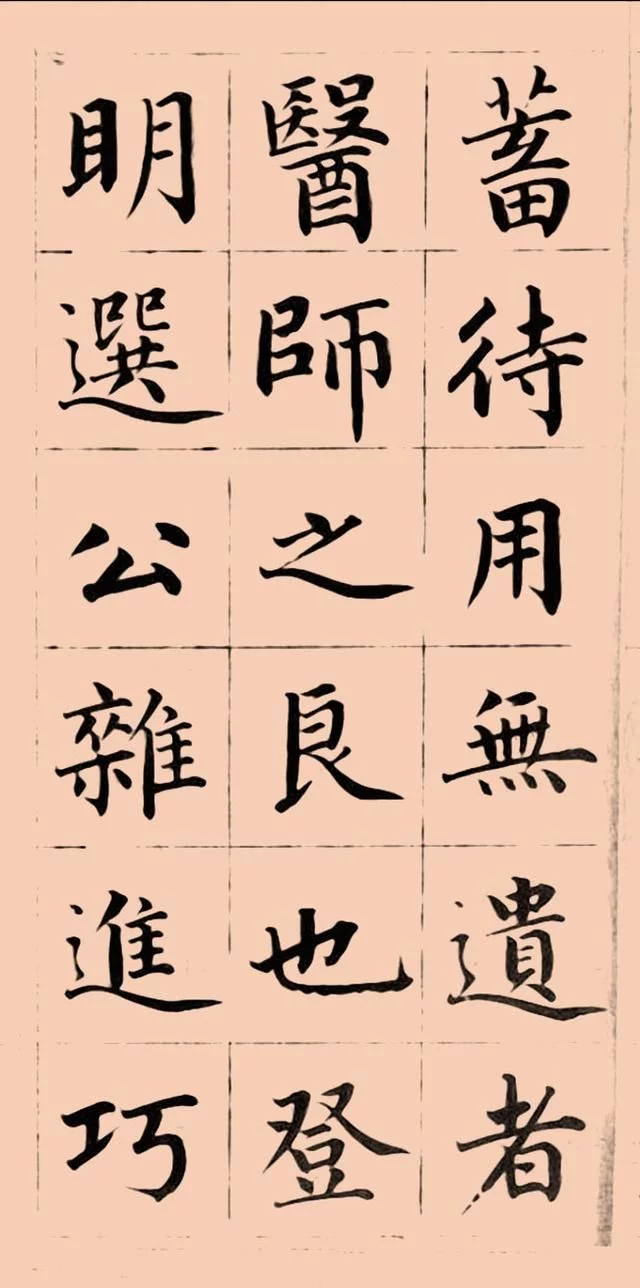 蓄待用無遺者
醫師之良也登
明選公雜進巧